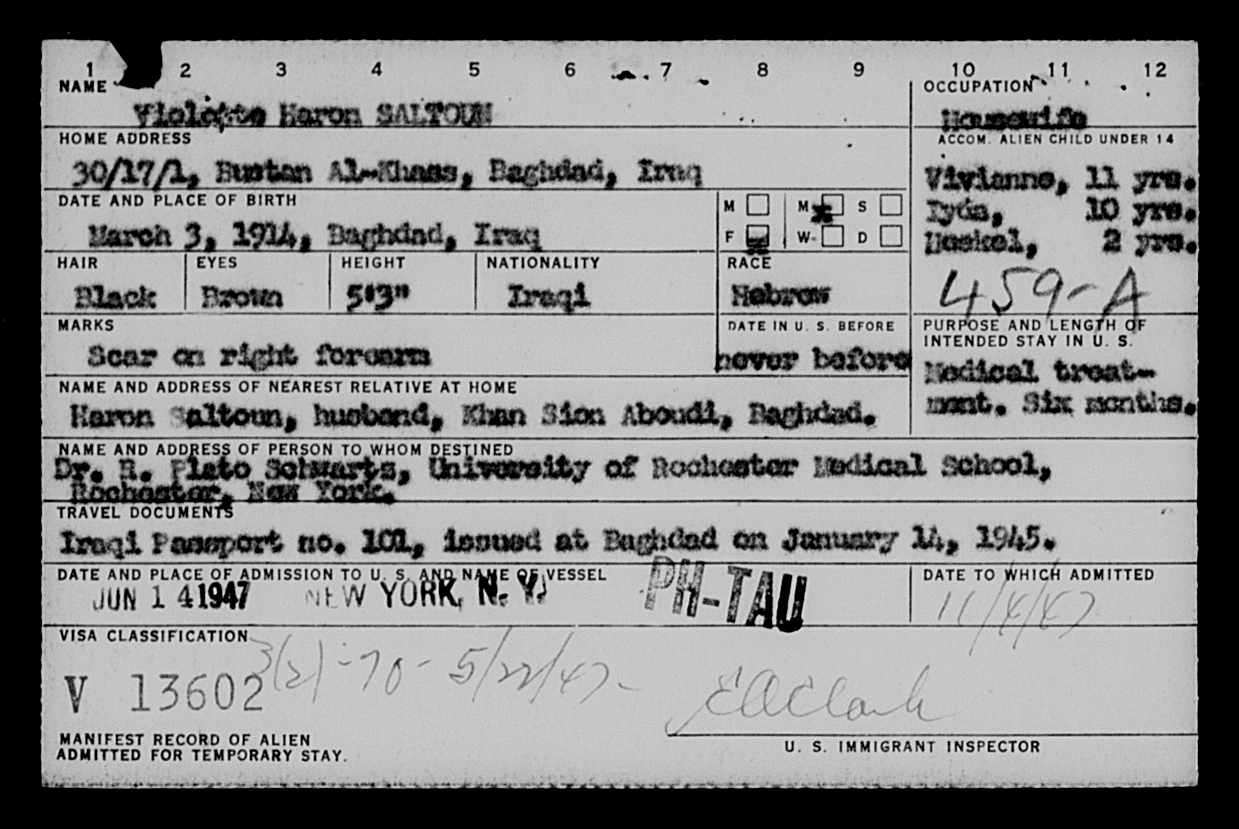 1 2 3 4 5 6 7 8 9 10 11 12
NAME
Violette Haron SALTOUN
OCCUPATION
Housewife
HOME ADDRESS
30/17/1, Bustan Al-Khass, Baghdad, Iraq
ACCOM. ALIEN CHILD UNDER 14
Vivianne, 11 yrs.
Lyda, 10 yrs.
Heskel, 2 yrs.
459-A
DATE AND PLACE OF BIRTH
March 3, 1914, Baghdad, Iraq
M M S
F W D
HAIR EYES HEIGHT NATIONALITY RACE
Black Brown 5'3" Iraqi Hebrew
MARKS
Scar on right forearm
DATE IN U. S. BEFORE
never before
PURPOSE AND LENGTH OF
INTENDED STAY IN U. S.
Medical treat-
ment. Six months.
NAME AND ADDRESS OF NEAREST RELATIVE AT HOME
Haron Saltoun, husband, Khan Sion Aboudi, Baghdad.
NAME AND ADDRESS OF PERSON TO WHOM DESTINED
Dr. R. Plato Schwartz, University of Rochester Medical School,
Rochester, New York.
TRAVEL DOCUMENTS
Iraqi Passport no. 101, issued at Baghdad on January 14, 1945.
DATE AND PLACE OF ADMISSION TO U. S. AND NAME OF VESSEL
JUN 14 1947 NEW YORK, N. Y. PH-TAU
DATE TO WHICH ADMITTED
11/4/47
VISA CLASSIFICATION
3(2)-70-5/22/47-
V 13602
E A Clark
MANIFEST RECORD OF ALIEN
ADMITTED FOR TEMPORARY STAY.
U. S. IMMIGRANT INSPECTOR